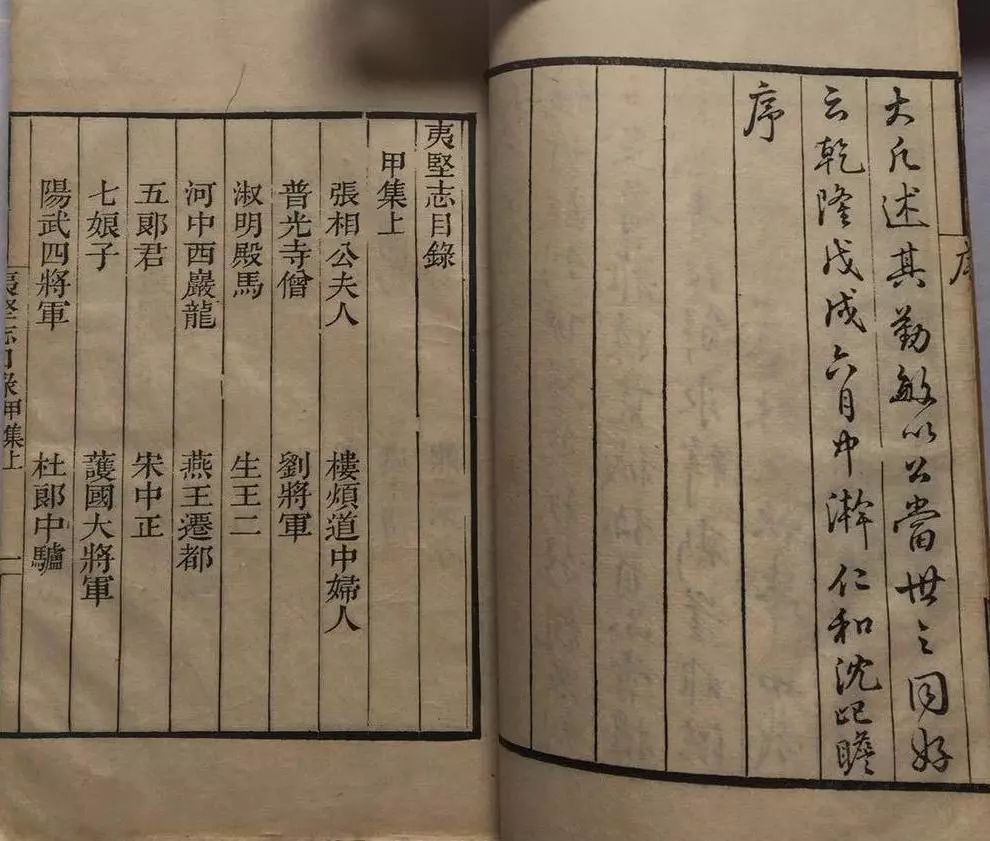 序
大凡述其勤敏以公當世之同好
云乾隆戊戌六月中澣仁和沈屺瞻
序
夷堅志目錄
甲集上
張相公夫人 樓煩道中婦人
普光寺僧 劉將軍
淑明殿馬 生王二
河中西巖龍 燕王遷都
五郎君 宋中正
七娘子 護國大將軍
陽武四將軍 杜郎中驢
夷堅志目錄甲集上 一